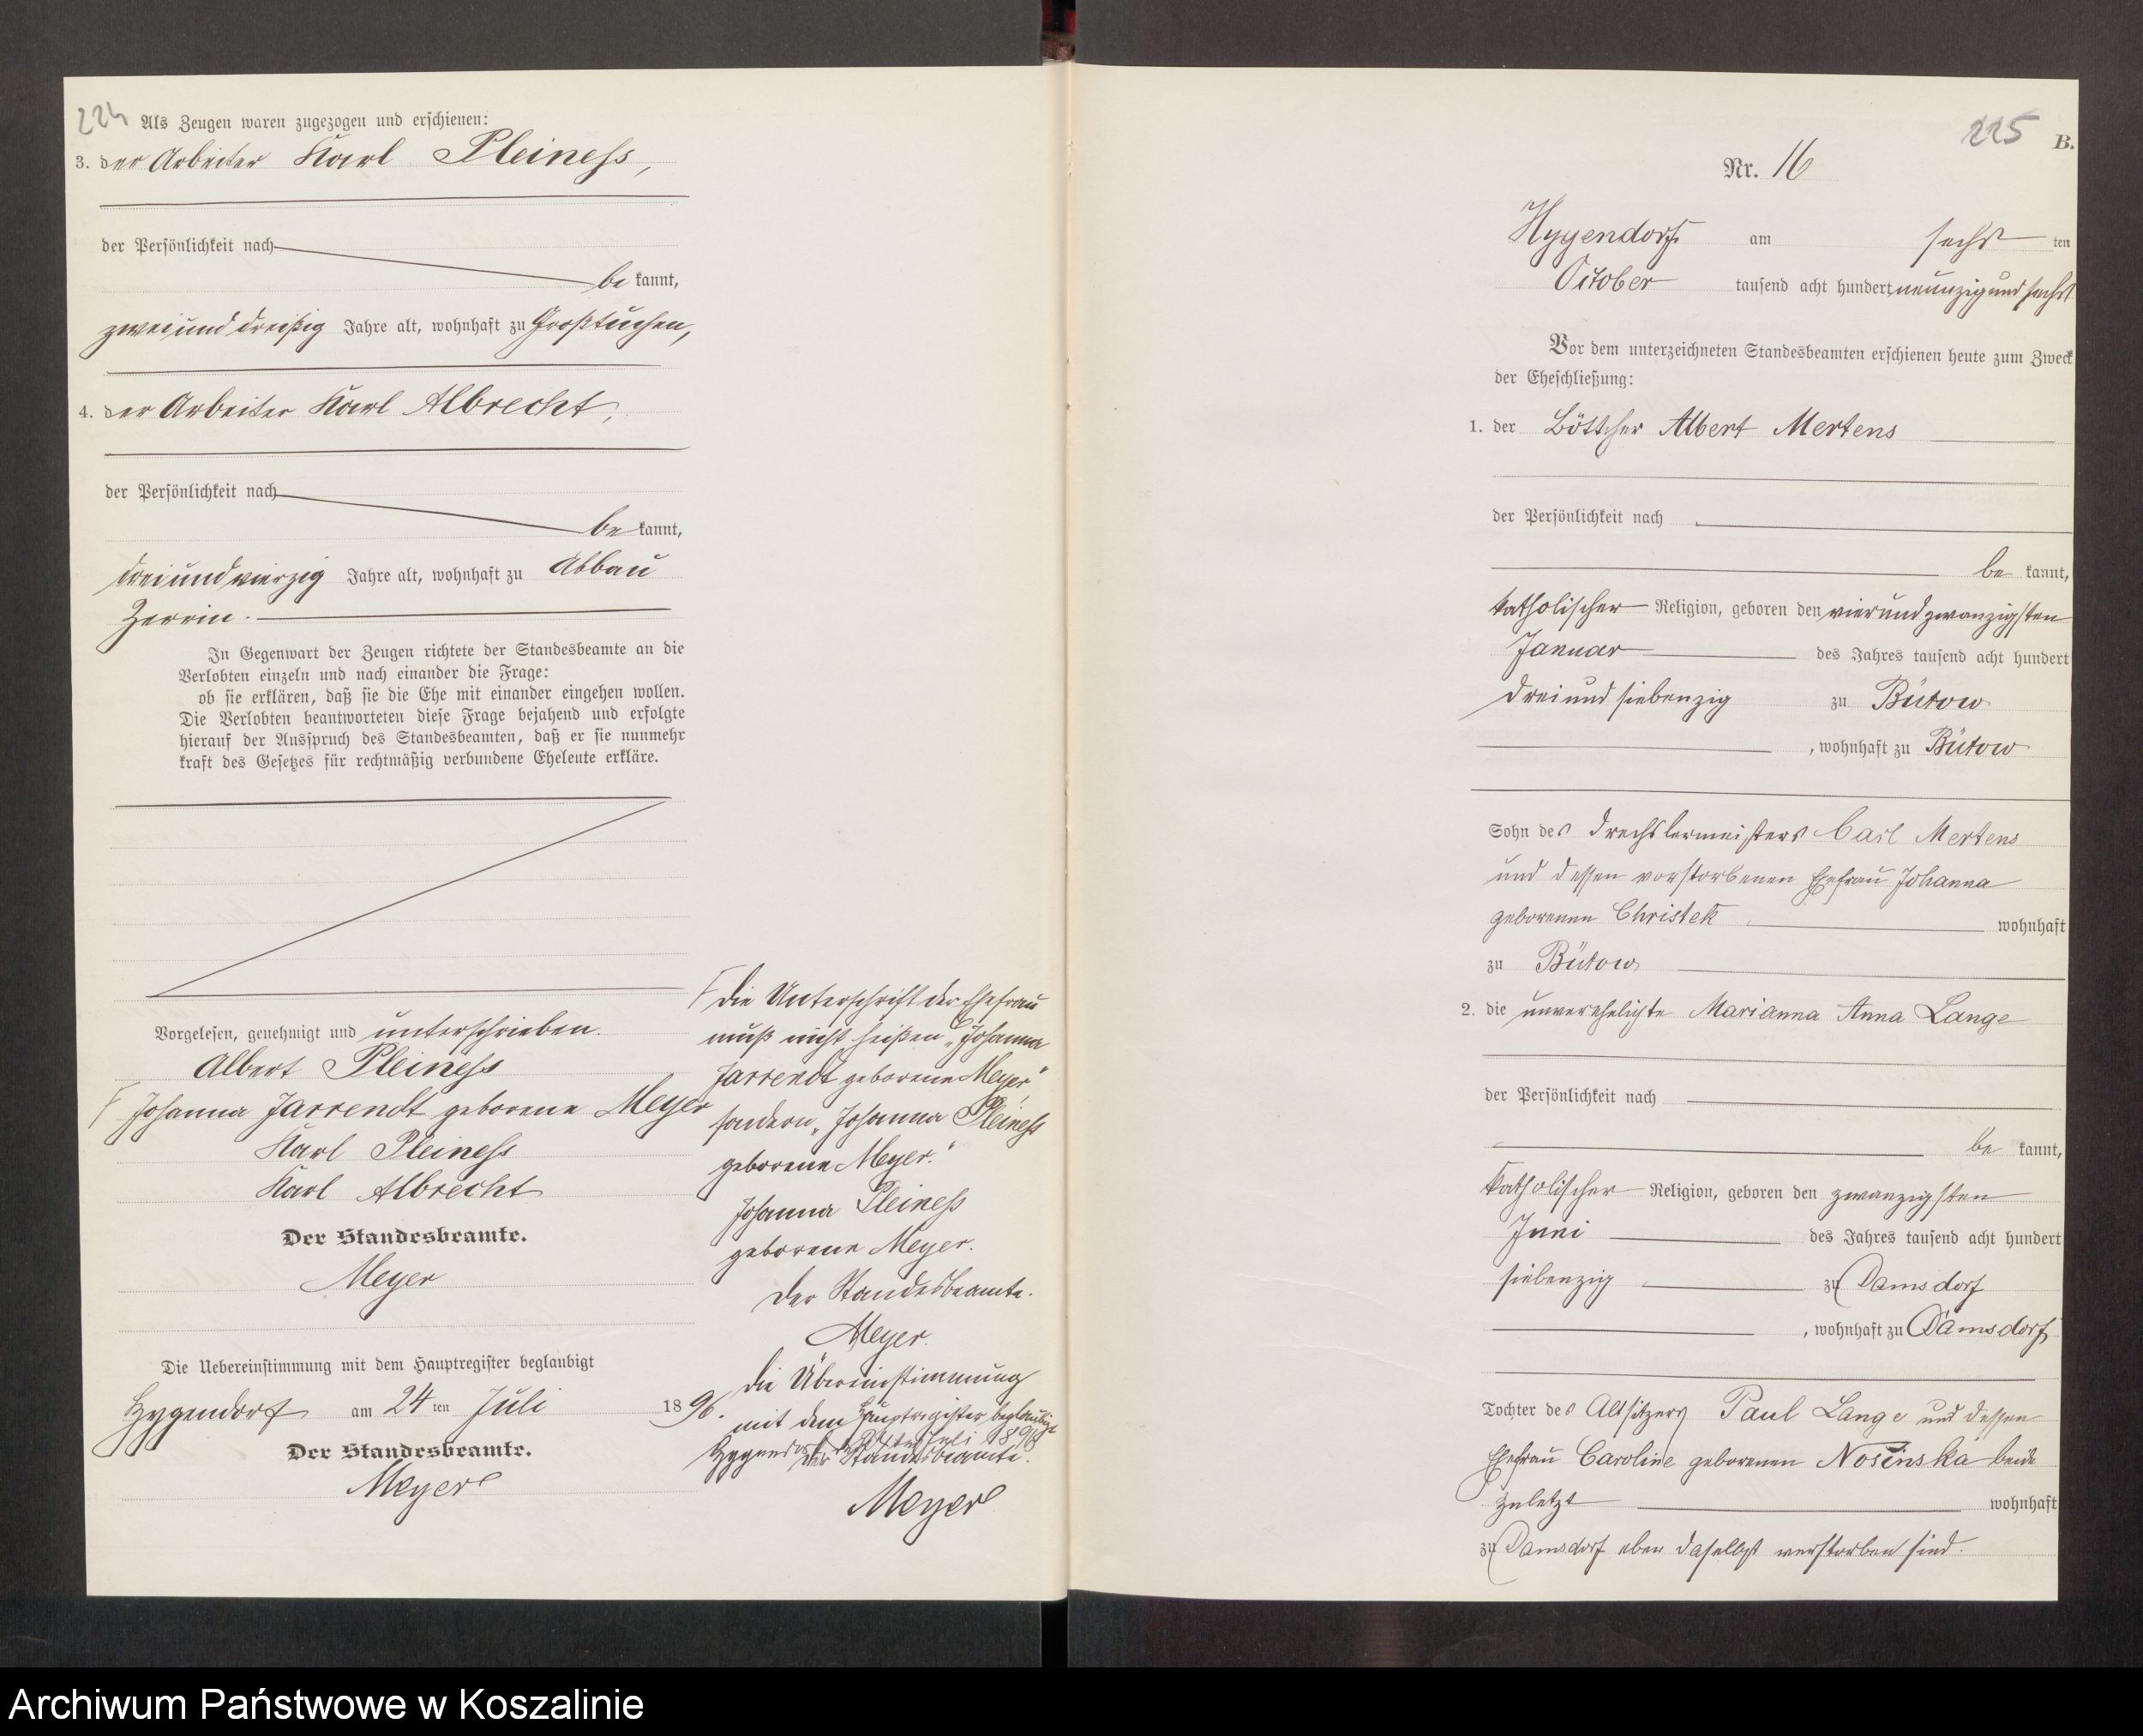 224
Als Zeugen waren zugezogen und erschienen:
3. der Arbeiter Karl Pleiness,
der Persönlichkeit nach
be kannt,
zweiunddreißig Jahre alt, wohnhaft zu Großtuchen,
4. der Arbeiter Karl Albrecht,
der Persönlichkeit nach
be kannt,
dreiundvierzig Jahre alt, wohnhaft zu Abbau
Zerrin.
In Gegenwart der Zeugen richtete der Standesbeamte an die
Verlobten einzeln und nach einander die Frage:
ob sie erklären, daß sie die Ehe mit einander eingehen wollen.
Die Verlobten beantworteten diese Frage bejahend und erfolgte
hierauf der Ausspruch des Standesbeamten, daß er sie nunmehr
kraft des Gesetzes für rechtmäßig verbundene Eheleute erkläre.
Vorgelesen, genehmigt und unterschrieben.
Albert Pleiness
Johanna Jarrendt geborene Meyer
Karl Pleiness
Karl Albrecht
Der Standesbeamte.
Meyer
Die Uebereinstimmung mit dem Hauptregister beglaubigt
Hygendorf am 24 ten Juli 1896.
Der Standesbeamte.
Meyer
die Unterschrift der Ehefrau
muß nicht heißen „Johanna
Jarrendt geborene Meyer"
sondern „Johanna Pleiness
geborene Meyer."
Johanna Pleiness
geborene Meyer.
Der Standesbeamte.
Meyer.
Die Übereinstimmung
mit dem Hauptregister beglaubigt
Hygendorf, den 24ten Juli 1896
Der Standesbeamte.
Meyer
225
B.
Nr. 16
Hygendorf am sechs ten
October tausend acht hundert neunzig und sechs
Vor dem unterzeichneten Standesbeamten erschienen heute zum Zweck
der Eheschließung:
1. der Böttcher Albert Mertens
der Persönlichkeit nach
be kannt,
katholischer Religion, geboren den vierundzwanzigsten
Januar des Jahres tausend acht hundert
dreiundsiebenzig zu Bütow
, wohnhaft zu Bütow
Sohn des Drechslermeisters Carl Mertens
und dessen verstorbenen Ehefrau Johanna
geborenen Christek wohnhaft
zu Bütow
2. die unverehelichte Marianna Anna Lange
der Persönlichkeit nach
be kannt,
katholischer Religion, geboren den zwanzigsten
Juni des Jahres tausend acht hundert
siebenzig zu Damsdorf
, wohnhaft zu Damsdorf
Tochter des Altsitzers Paul Lange und dessen
Ehefrau Caroline geborenen Nosinska beide
zuletzt wohnhaft
zu Damsdorf eben daselbst verstorben sind.
Archiwum Państwowe w Koszalinie